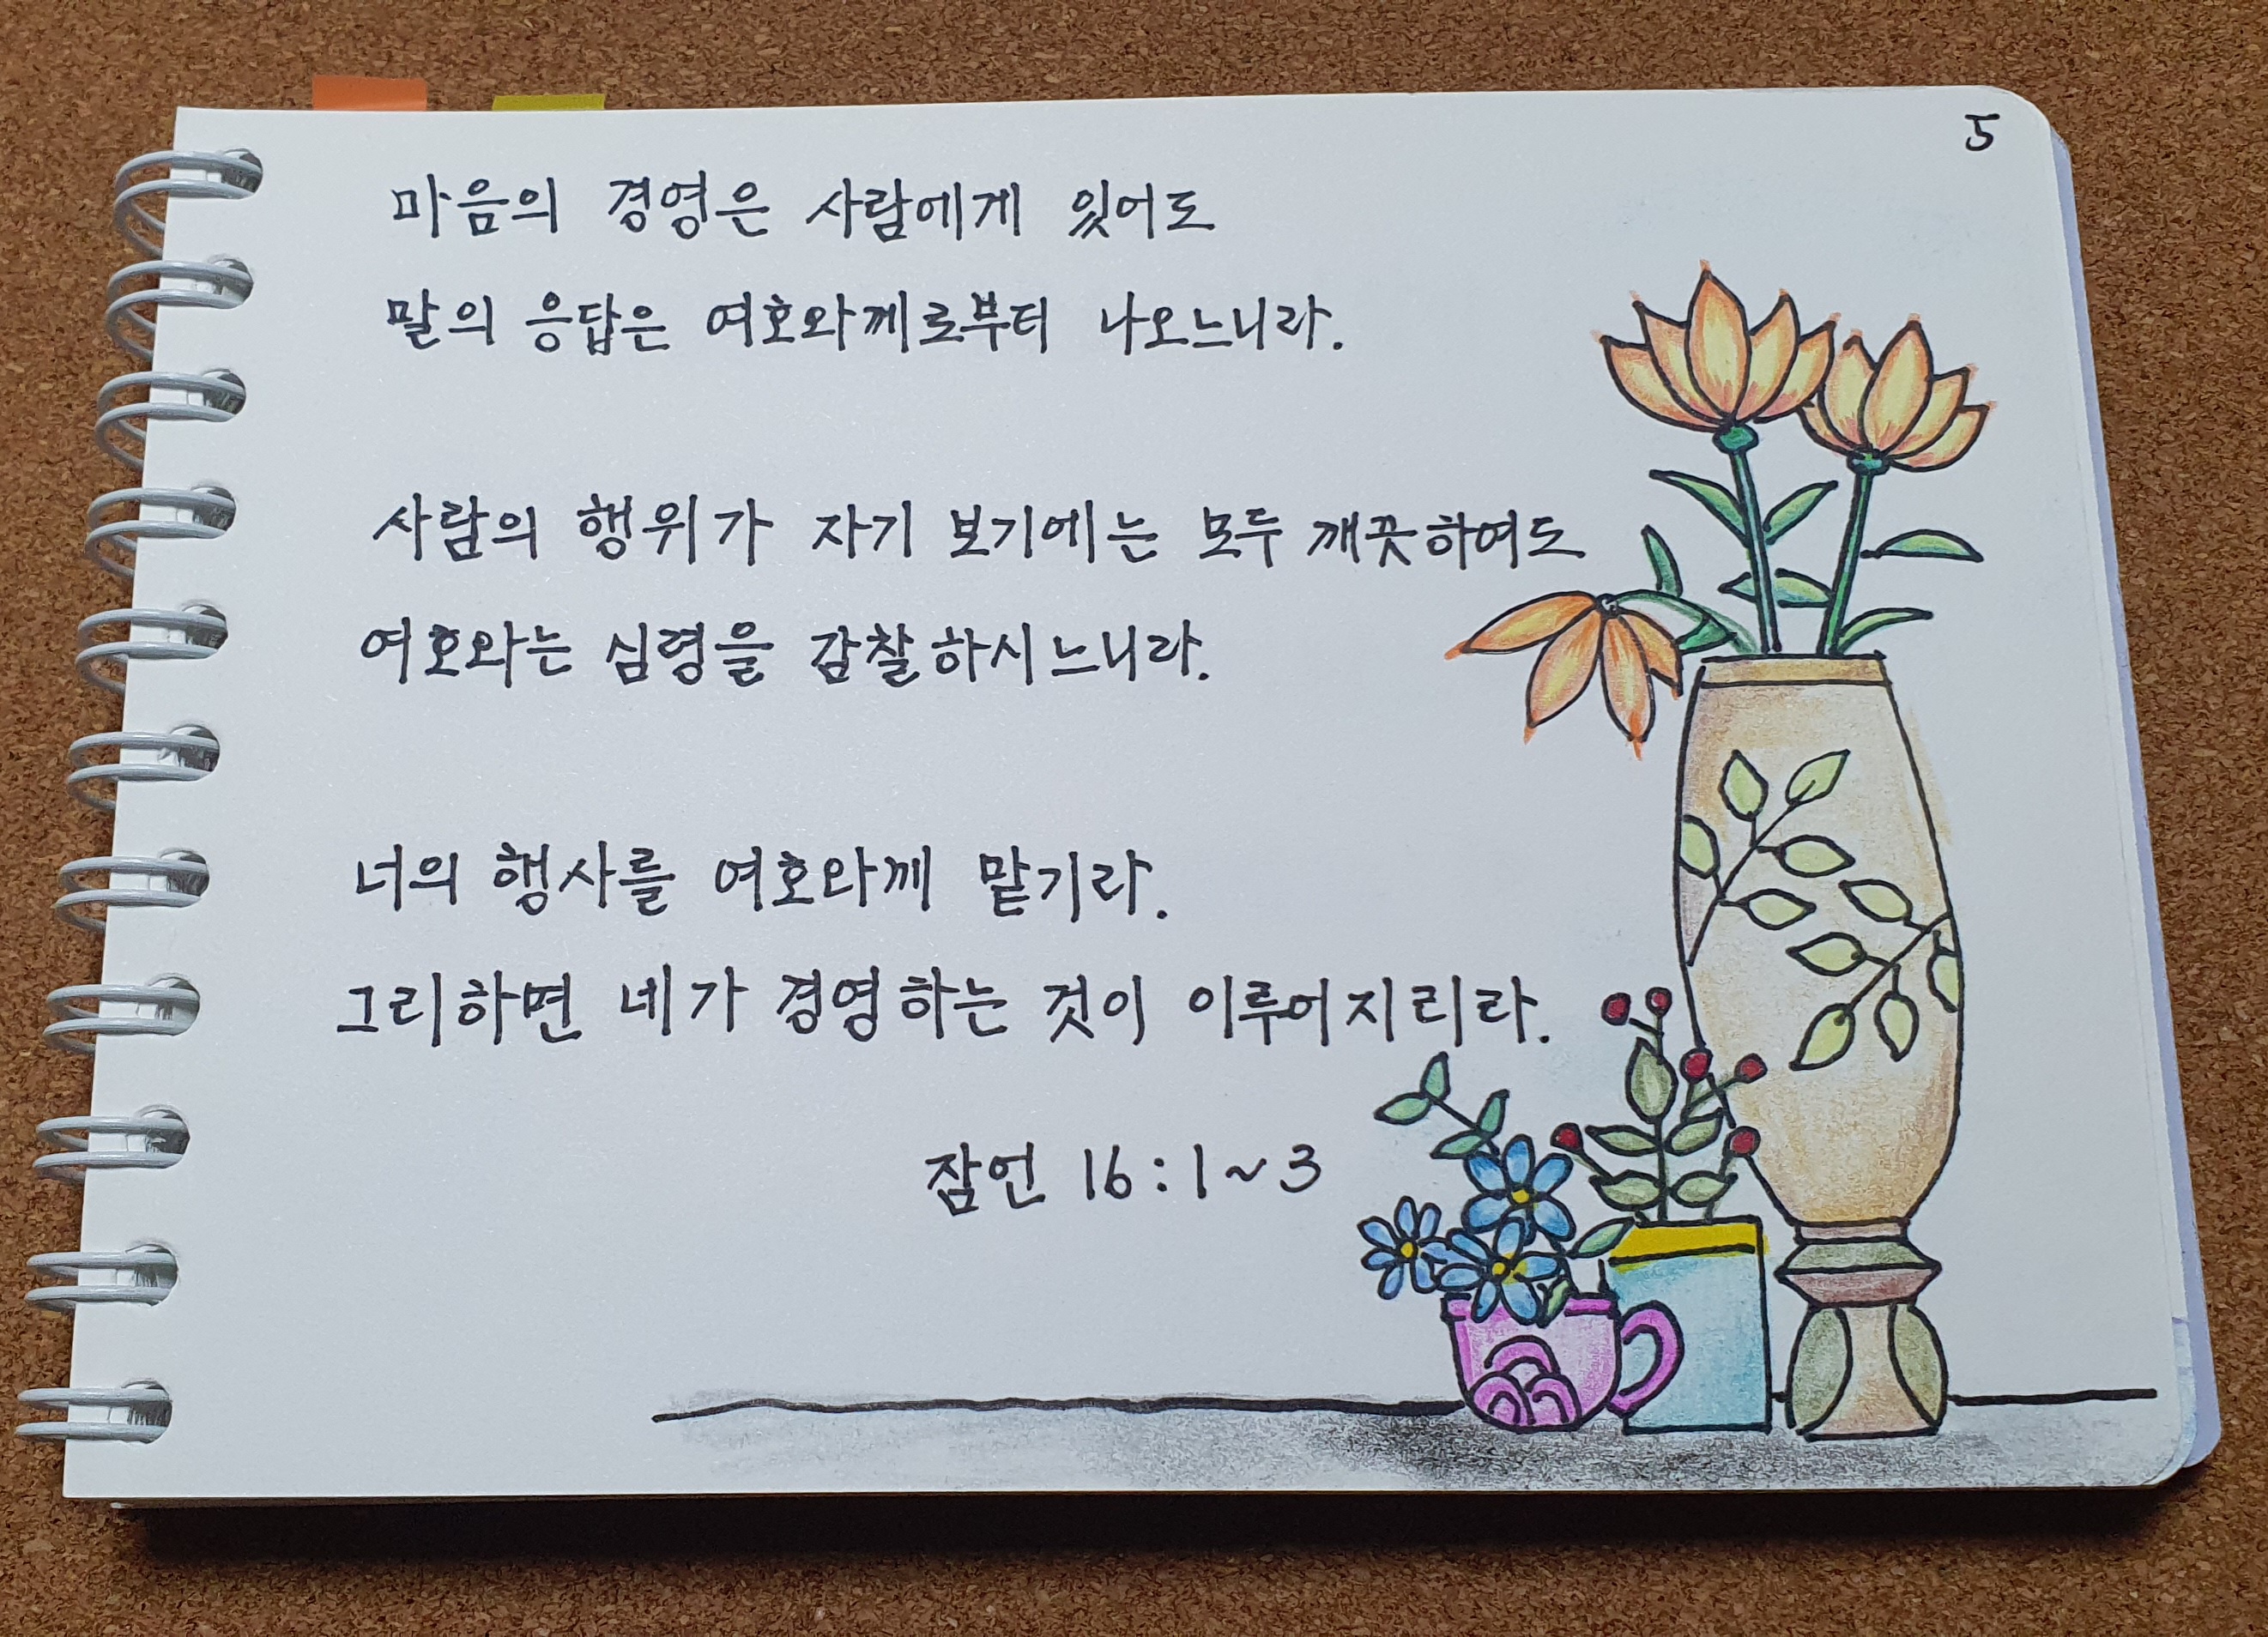 5
마음의 경영은 사람에게 있어도
말의 응답은 여호와께로부터 나오느니라.
사람의 행위가 자기 보기에는 모두 깨끗하여도
여호와는 심령을 감찰하시느니라.
너의 행사를 여호와께 맡기라.
그리하면 네가 경영하는 것이 이루어지리라.
잠언 16:1~3